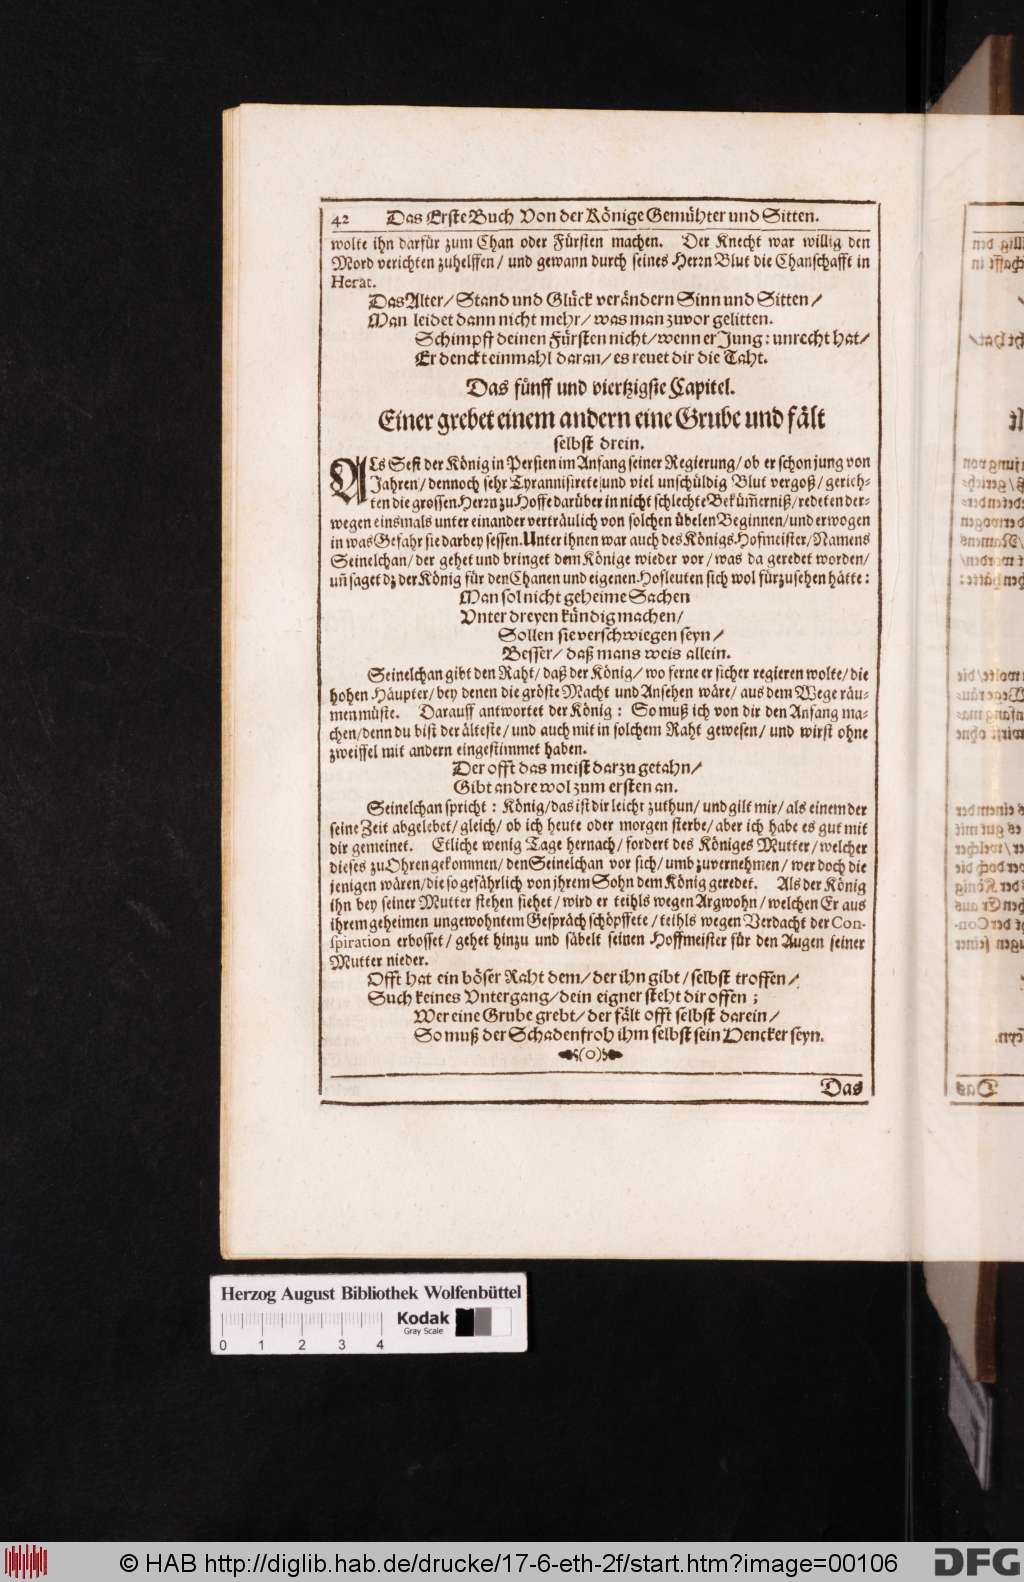 42 Das Erste Buch Von der Könige Gemühter und Sitten.
wolte ihn darfür zum Chan oder Fürsten machen. Der Knecht war willig den
Mord verichten zuhelffen / und gewann durch seines Herrn Blut die Chanschafft in
Herat.
Das Alter / Stand und Glück verändern Sinn und Sitten /
Man leidet dann nicht mehr / was man zuvor gelitten.
Schimpff deinen Fürsten nicht / wenn er Jung: unrecht hat /
Er denckt einmahl daran / es reuet dir die Taht.
Das fünff und viertzigste Capitel.
Einer grebet einem andern eine Grube und fält
selbst drein.
ALs Sefi der König in Persien im Anfang seiner Regierung / ob er schon jung von
Jahren / dennoch sehr Tyrannisirete und viel unschüldig Blut vergoß / gerich-
ten die grossen Herrn zu Hoffe darüber in nicht schlechte Bekümerniß / redeten der-
wegen einsmals unter einander verträulich von solchen übelen Beginnen / und erwogen
in was Gefahr sie darbey sessen. Unter ihnen war auch des Königs Hofmeister / Namens
Seinelchan / der gehet und bringet dem Könige wieder vor / was da geredet worden /
uñ saget dz der König für den Chanen und eigenen Hofleuten sich wol fürzusehen hätte:
Man sol nicht geheime Sachen
Unter dreyen kündig machen /
Sollen sie verschwiegen seyn /
Besser / daß mans weis allein.
Seinelchan gibt den Raht / daß der König / wo ferne er sicher regieren wolte / die
hohen Häupter / bey denen die gröste Macht und Ansehen wäre / aus dem Wege räu-
men müste. Darauff antwortet der König: So muß ich von dir den Anfang ma-
chen / denn du bist der älteste / und auch mit in solchem Raht gewesen / und wirst ohne
zweiffel mit andern eingestimmet haben.
Der offt das meist darzu getahn /
Gibt andre wol zum ersten an.
Seinelchan spricht: König / das ist dir leicht zuthun / und gilt mir / als einem der
seine Zeit abgelebet / gleich / ob ich heute oder morgen sterbe / aber ich habe es gut mit
dir gemeinet. Etliche wenig Tage hernach / fordert des Königes Mutter / welcher
dieses zu Ohren gekommen / den Seinelchan vor sich / umb zuvernehmen / wer doch die
jenigen wären / die so gefährlich von jhrem Sohn dem König geredet. Als der König
ihn bey seiner Mutter stehen siehet / wird er teihls wegen Argwohn / welchen Er aus
ihrem geheimen ungewohntem Gespräch schöpffete / teihls wegen Verdacht der Con-
spiration erbosset / gehet hinzu und säbelt seinen Hoffmeister für den Augen seiner
Mutter nieder.
Offt hat ein böser Raht dem / der ihn gibt / selbst troffen /
Such keines Untergang / dein eigner steht dir offen;
Wer eine Grube grebt / der fält offt selbst darein /
So muß der Schadenfroh ihm selbst sein Hencker seyn.
(0)
Das
Herzog August Bibliothek Wolfenbüttel
Kodak
Gray Scale
0 1 2 3 4
© HAB http://diglib.hab.de/drucke/17-6-eth-2f/start.htm?image=00106
DFG